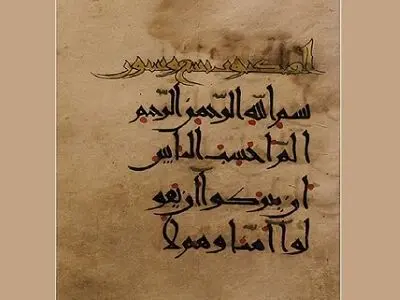 العنكبوت تسع وستون
بسم الله الرحمن الرحيم
الم احسب الناس
ان يتركوا ان يقو
لوا آمنا وهم لا